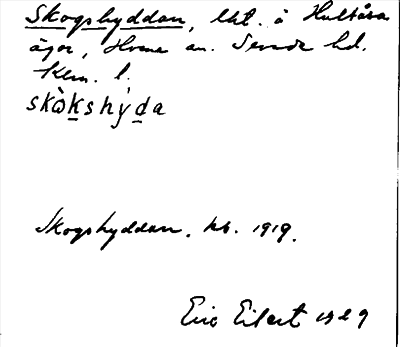 Skogshyddan, lht. å Hultåsa
ägor, Hvena sn. Sevede hd.
Klm. l.
skòkshýda
Skogshyddan. kb. 1919.
Eric Eilert 1929